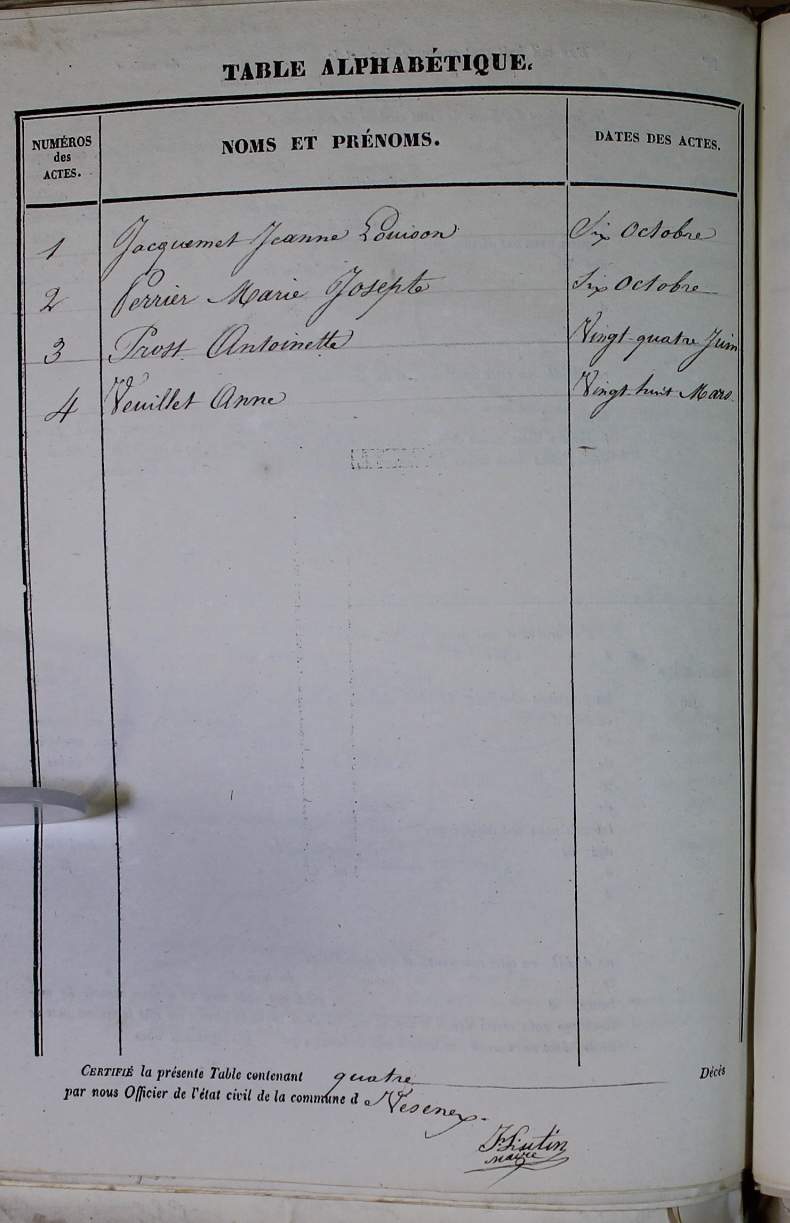 TABLE ALPHABÉTIQUE.
NUMÉROS des ACTES. NOMS ET PRÉNOMS. DATES DES ACTES.
1 Jacquemet Jeanne Louison Six Octobre
2 Perrier Marie Josepte Six Octobre
3 Prost Antoinette Vingt-quatre Juin
4 Veuillet Anne Vingt huit Mars
CERTIFIÉ la présente Table contenant quatre Décès
par nous Officier de l'état civil de la commune d e Vesenex.
Maire